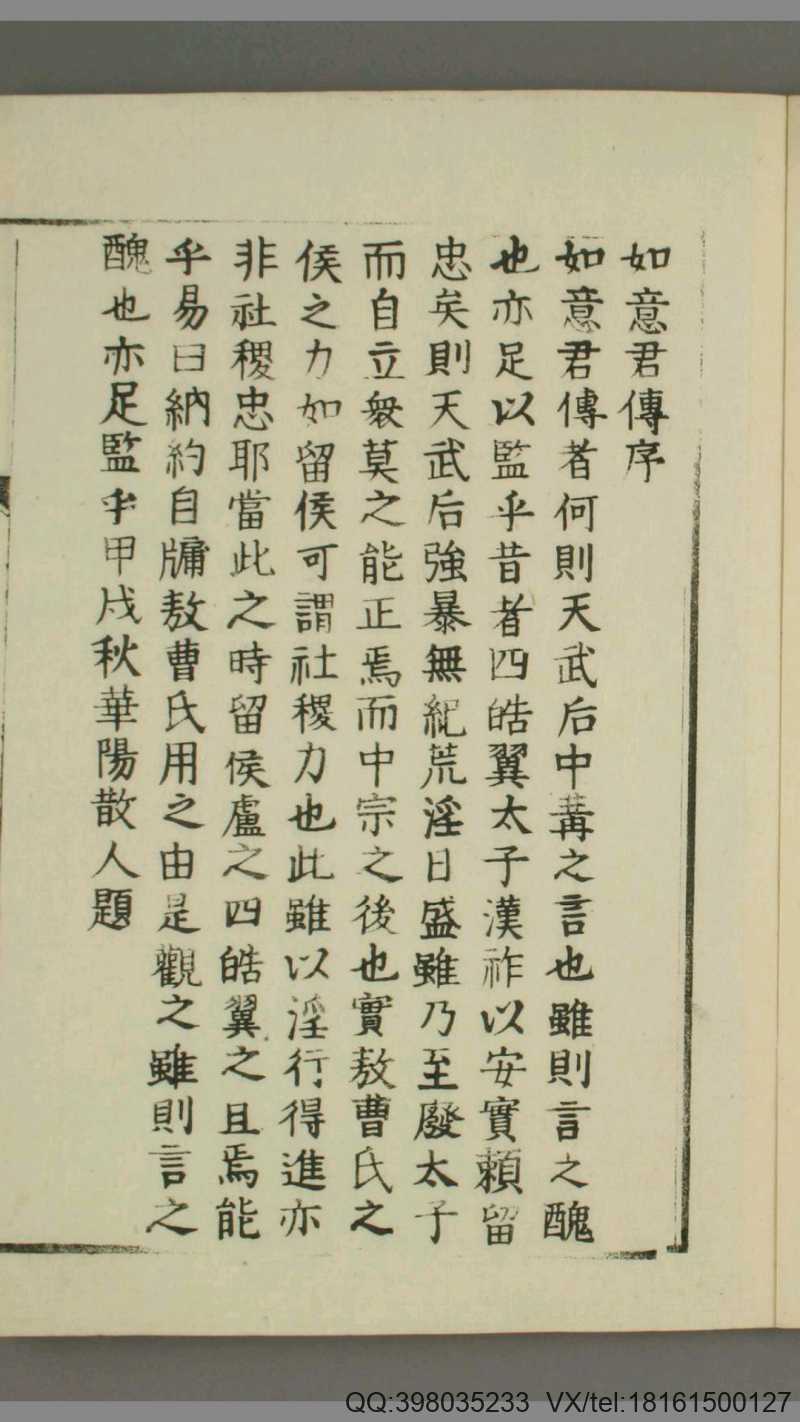 如意君傳序
如意君傳者何則天武后中冓之言也雖則言之醜
也亦足以監乎昔者四皓翼太子漢祚以安實賴留
忠矣則天武后強暴無紀荒淫日盛雖乃至廢太子
而自立衆莫之能正焉而中宗之後也實敖曹氏之
侯之力如留侯可謂社稷力也此雖以淫行得進亦
非社稷忠耶當此之時留侯盧之四皓翼之且焉能
乎易曰納約自牖敖曹氏用之由是觀之雖則言之
醜也亦足監乎甲戌秋華陽散人題
QQ:398035233 VX/tel:18161500127